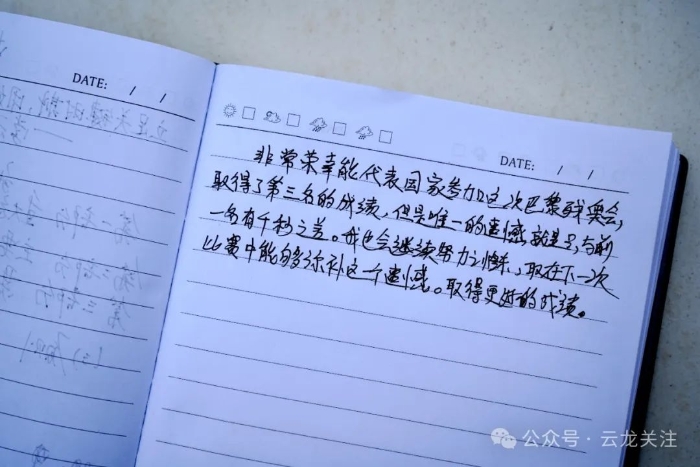 DATE: / /
DATE: / /
非常荣幸能代表国家参加这次巴黎残奥会,
取得了第三名的成绩,但是唯一的遗憾就是与前
一名有千秒之差。我也会继续努力训练,取在下一次
比赛中能够弥补这个遗憾。取得更好的成绩。
公众号·云龙关注